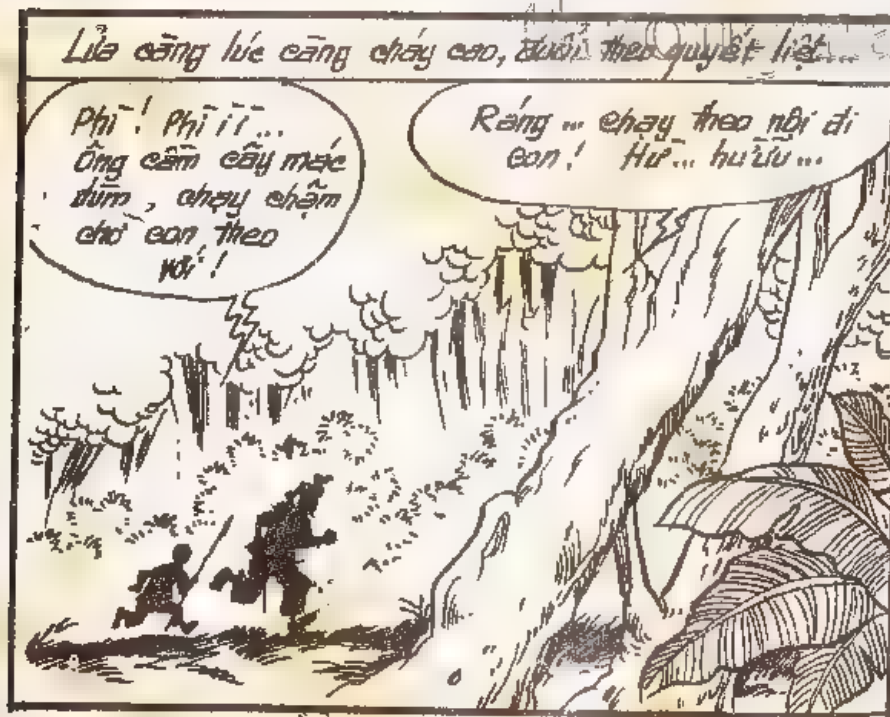 Lửa càng lúc càng cháy cao, đuổi theo quyết liệt...
Phì! Phì ì ì...
Ông cầm cây mác
dùm, chạy chậm
chờ con theo
với!
Ráng... chạy theo nội đi
con! Hừ... hừừư...